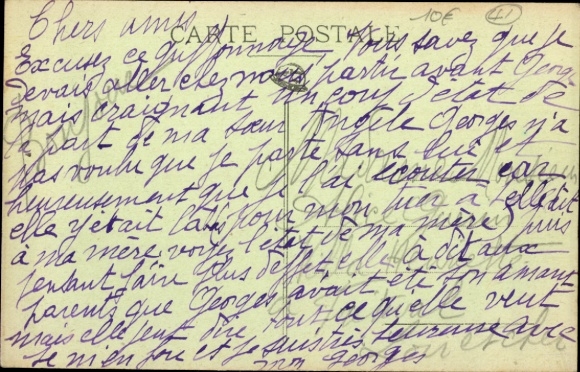 10€ 41
Chers amis
CARTE POSTALE
Excusez ce griffonnage Vous savez que je
devais aller chez nous partir avant George
mais craignant un coup d'état de
la part de ma sœur Angèle Georges n'a
pas voulu que je parte sans lui et
heureusement que je l'ai écouter car
elle y était là pour mon tuer a telle dit
à ma mère voyez l'état de ma mère puis
pensant faire plus d'effet elle à dit aux
parents que Georges avait été son amant
mais elle peut dire tout ce qu'elle veut
je m'en fou et je suis très heureuse avec
mon Georges